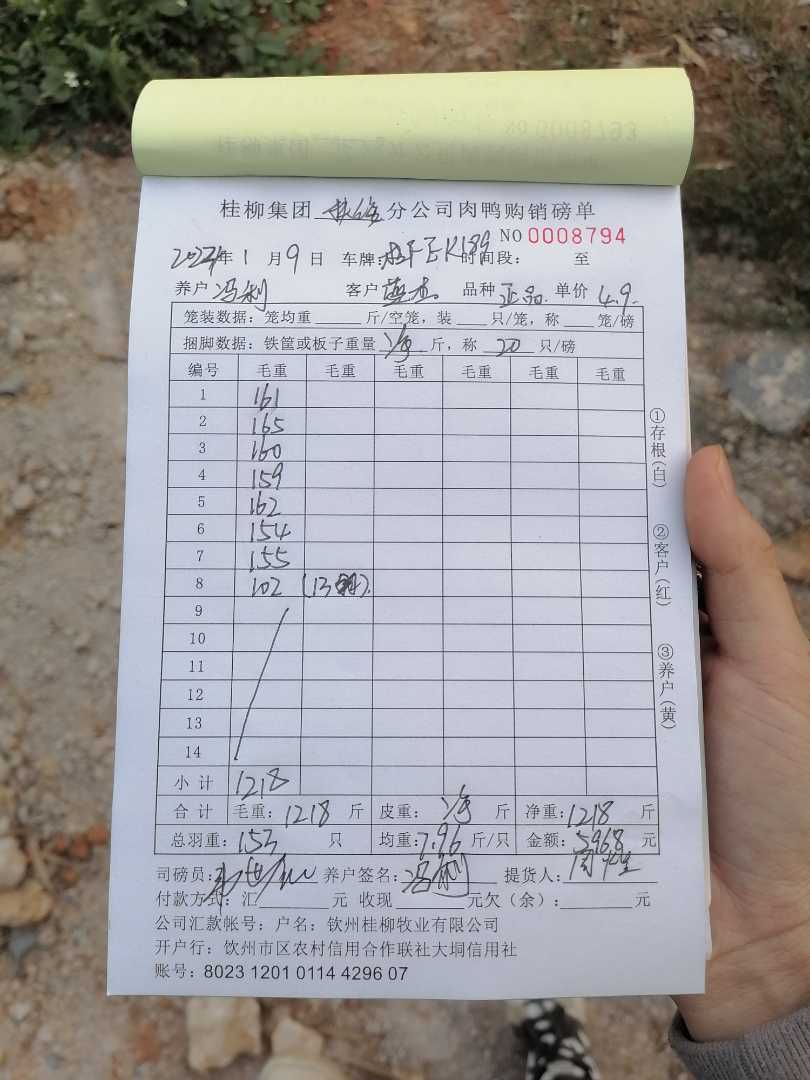 桂柳集团 分公司肉鸭购销磅单
NO 0008794
2024年 1 月 9 日 车牌: K189 时间段: 至
养户 冯利 客户 品种 正品 单价 4.9.
笼装数据: 笼均重 斤/空笼, 装 只/笼, 称 笼/磅
捆脚数据: 铁筐或板子重量 净 斤, 称 20 只/磅
编号 毛重 毛重 毛重 毛重 毛重 毛重
1 161
2 165
3 160
4 159
5 162
6 154
7 155
8 102 (13 ).
9
10
11
12
13
14
小计 1218
合计 毛重: 1218 斤 皮重: 净 斤 净重: 1218 斤
总羽重: 153 只 均重: 7.96 斤/只 金额: 5968 元
司磅员: 养户签名: 冯利 提货人:
付款方式: 汇 元 收现 元欠(余): 元
公司汇款帐号: 户名: 钦州桂柳牧业有限公司
开户行: 钦州市区农村信用合作联社大垌信用社
账号: 8023 1201 0114 4296 07
①存根(白)
②客户(红)
③养户(黄)